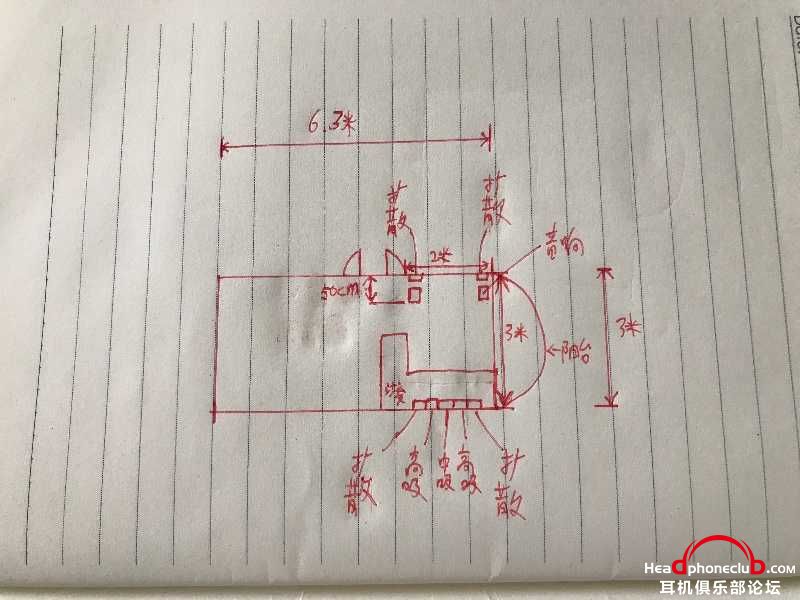 6.3米
扩散
扩散
音响
2米
50cm
3米
3米
阳台
沙发
扩散
高吸
中吸
高吸
扩散
HeadphoneclubD.com
耳机俱乐部论坛